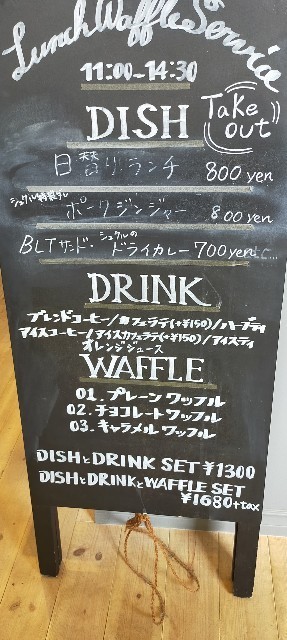 Lunch Waffle Service
11:00-14:30
DISH
Take out
日替りランチ 800yen
シュクル特製ダレ
ポークジンジャー 800yen
BLTサンド・シュクルのドライカレー 700yen
DRINK
ブレンドコーヒー/カフェラテ(+¥150)/ハーブティ
アイスコーヒー/アイスカフェラテ(+¥150)/アイスティ
オレンジジュース
WAFFLE
01. プレーンワッフル
02. チョコレートワッフル
03. キャラメルワッフル
DISHとDRINK SET ¥1300
DISHとDRINKとWAFFLE SET
¥1680+tax